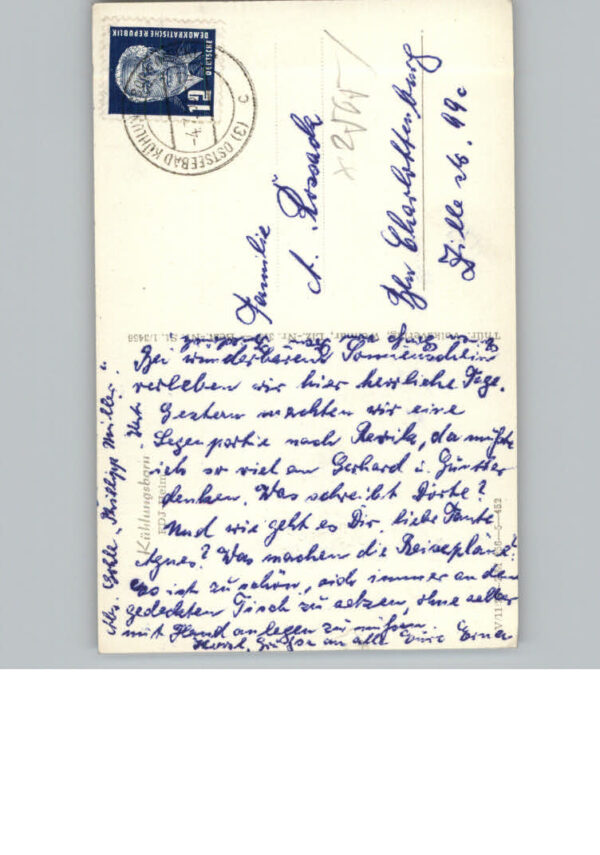 DEUTSCHE
DEMOKRATISCHE REPUBLIK
12
(3) OSTSEEBAD KÜHLUNGSBORN
c
-4.
Familie
A. Rossack
Bln Charlottenburg
Zille str. 99c
Bei wunderbarem Sonnenschein
verleben wir hier herrliche Tage.
Gestern machten wir eine
Segenpartie nach Rerik, da mußte
ich so viel an Gerhard u. Günther
denken. Was schreibt Dörte?
Und wie geht es Dir liebe Tante
Agnes? Was machen die Reisepläne?
Es ist zu schön, sich immer an den
gedeckten Tisch zu setzen, ohne selber
mit Hand anlegen zu müssen.
Herzl. Grüße an alle Eure Erna
"Philipp Müller"
Kühlungsborn
FDJ-Heim